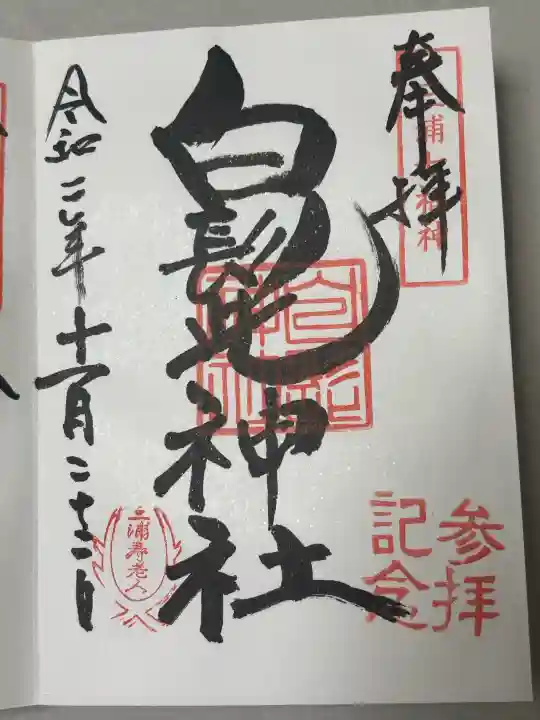 奉拝
三浦七福神
白髭神社
白髭神社
参拝
記念
令和二年十一月二十二日
三浦寿老人